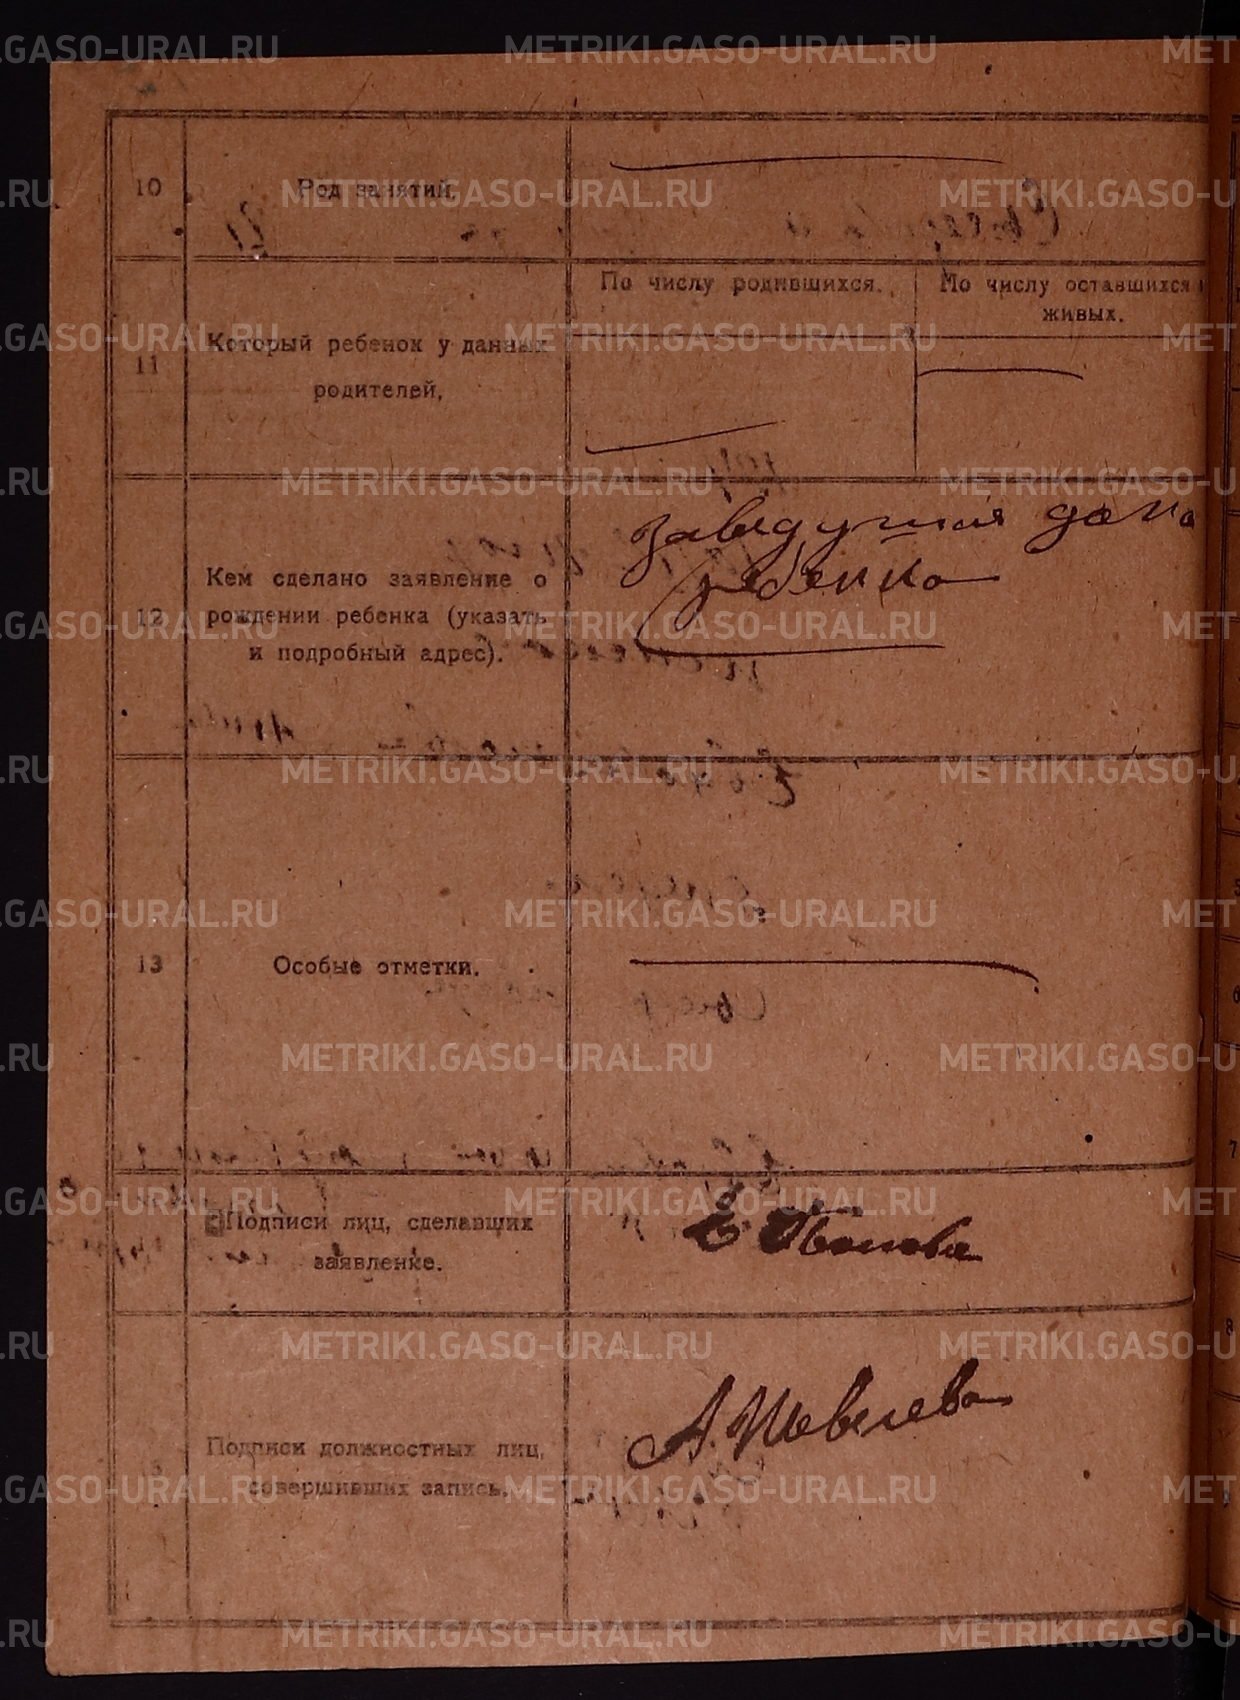 10
Род занятий.
11
Который ребенок у данных
родителей,
По числу родившихся.
По числу оставшихся
живых.
12
Кем сделано заявление о
рождении ребенка (указать
и подробный адрес).
Заведующая дома
ребенка
13
Особые отметки.
Подписи лиц, сделавших
заявление.
Подписи должностных лиц,
совершивших запись.
А. Шевелева
METRIKI.GASO-URAL.RU